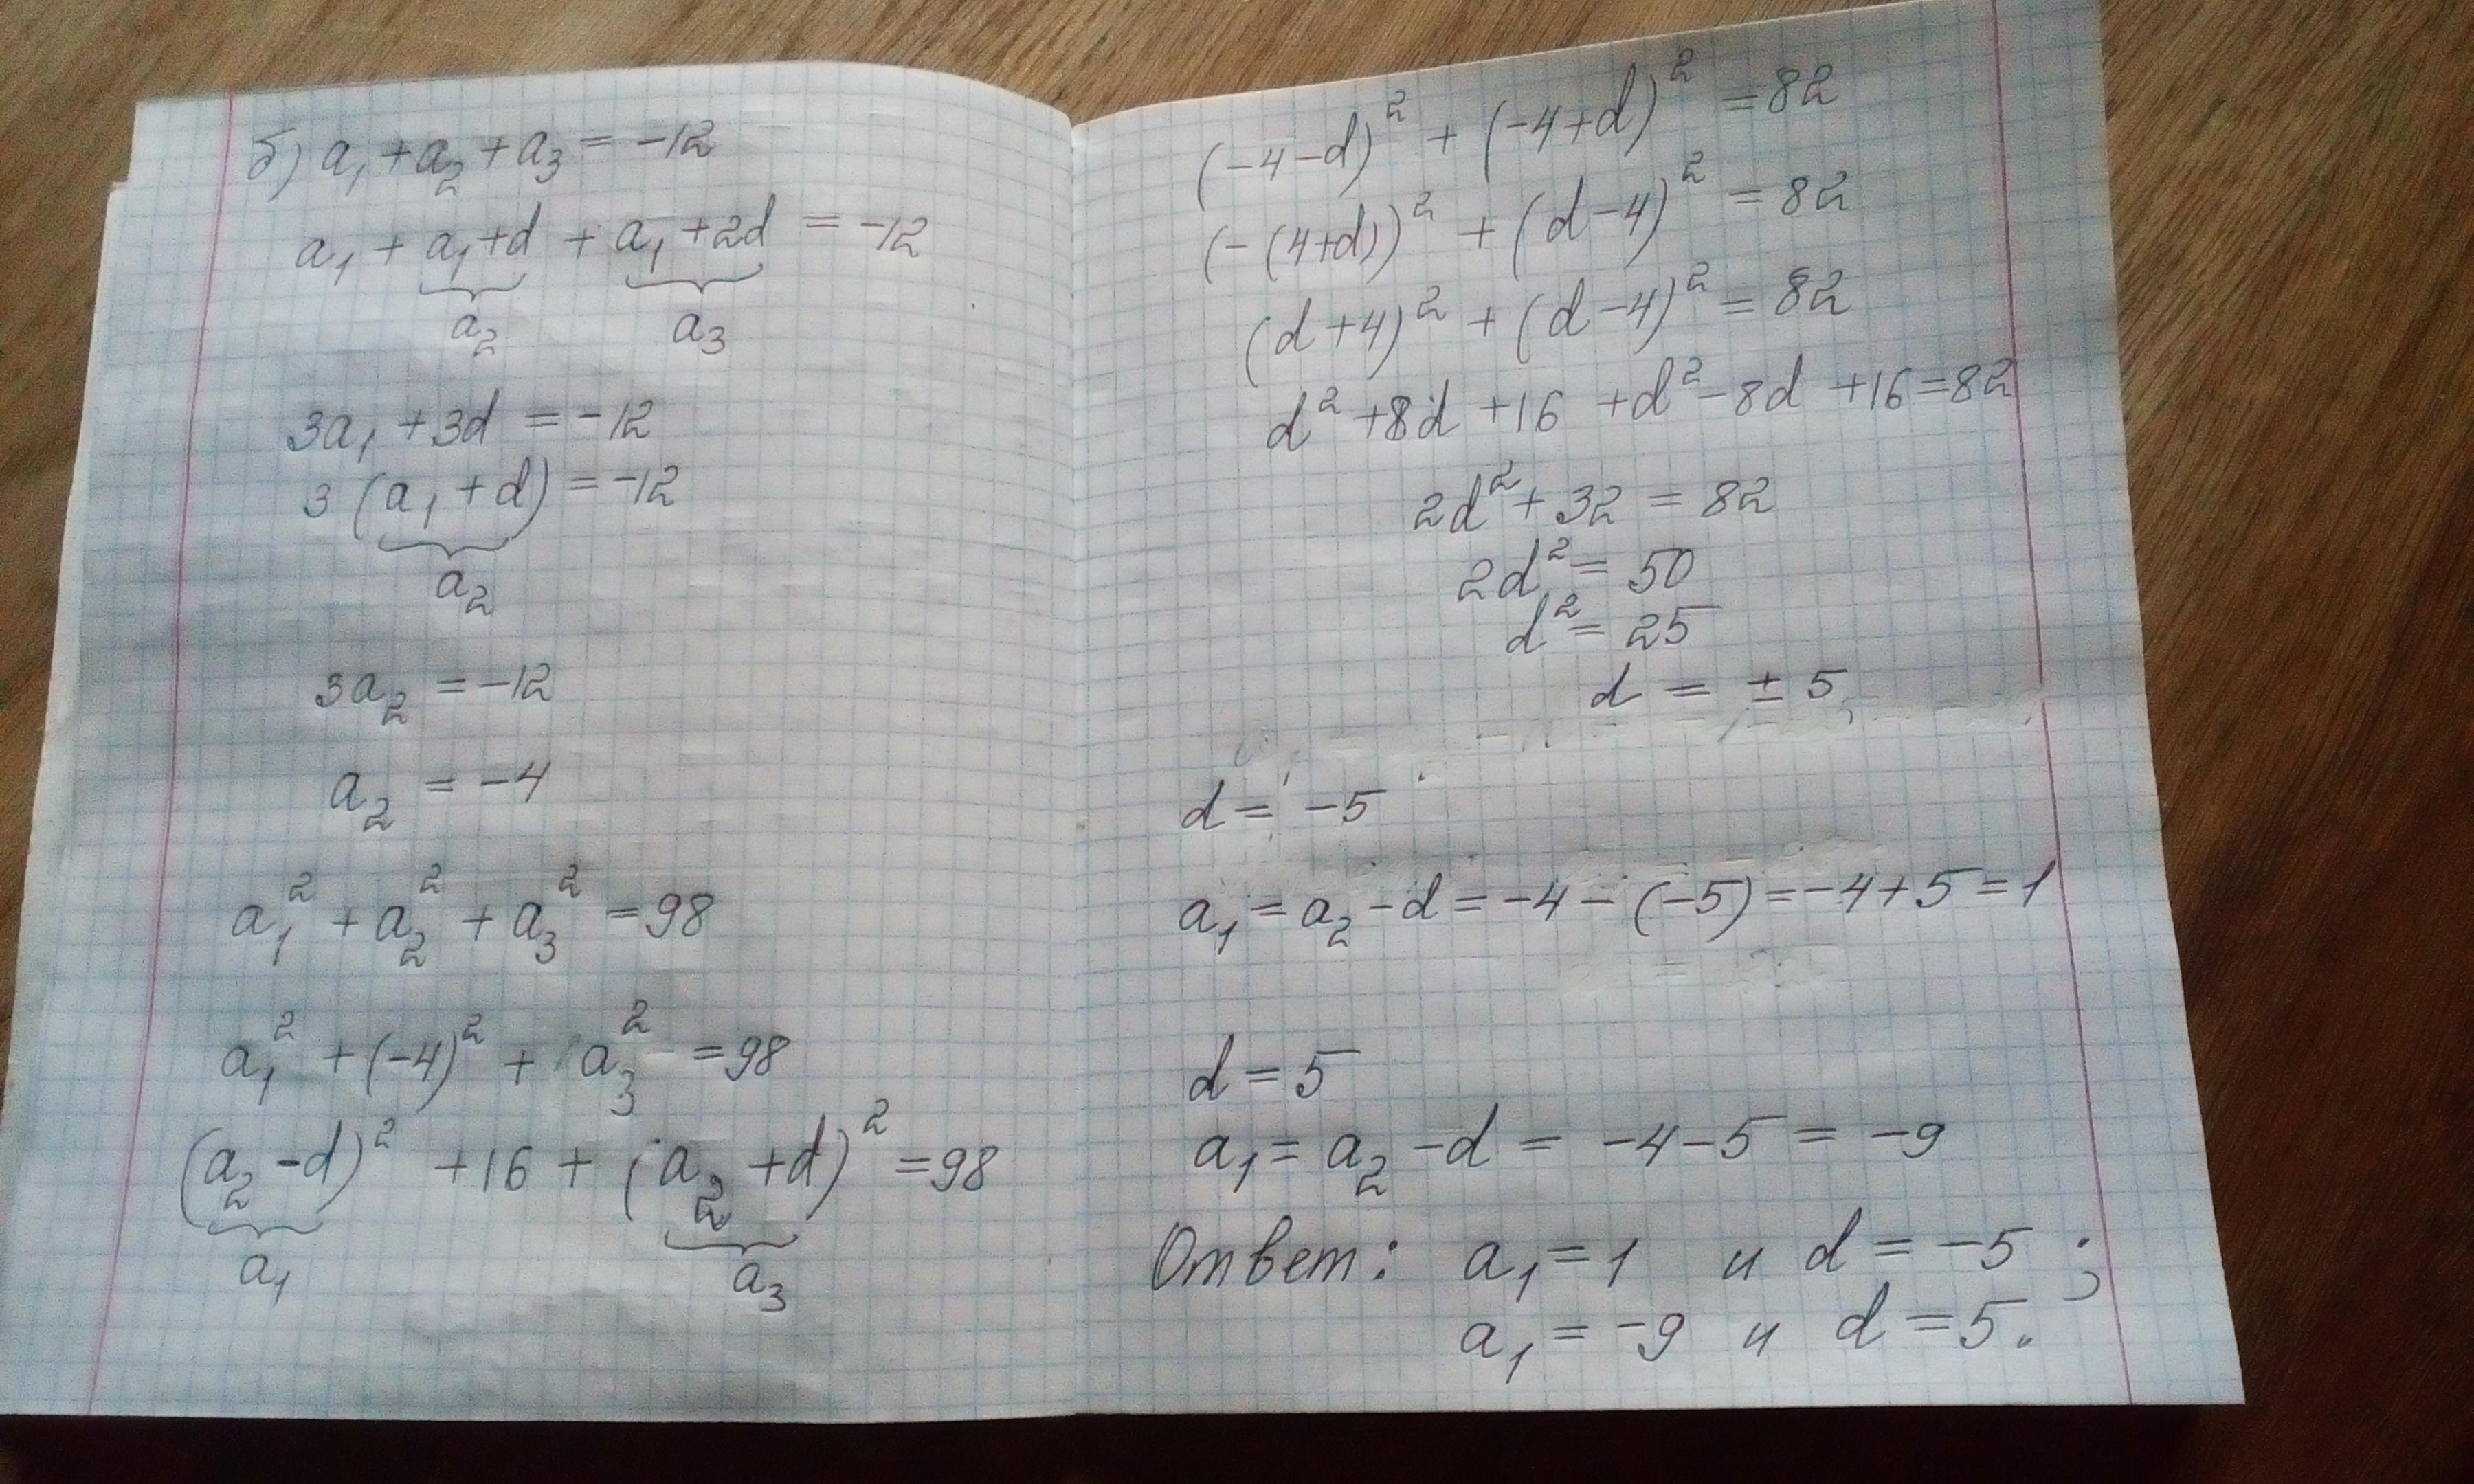 б) a₁ + a₂ + a₃ = -12
a₁ + a₁+d + a₁+2d = -12
a₂ a₃
3a₁ + 3d = -12
3(a₁ + d) = -12
a₂
3a₂ = -12
a₂ = -4
a₁² + a₂² + a₃² = 98
a₁² + (-4)² + a₃² = 98
(a₂ - d)² + 16 + (a₂ + d)² = 98
a₁ a₃
(-4-d)² + (-4+d)² = 82
(-(4+d))² + (d-4)² = 82
(d+4)² + (d-4)² = 82
d² + 8d + 16 + d² - 8d + 16 = 82
2d² + 32 = 82
2d² = 50
d² = 25
d = ± 5
d = -5
a₁ = a₂ - d = -4 - (-5) = -4 + 5 = 1
d = 5
a₁ = a₂ - d = -4 - 5 = -9
Ответ: a₁ = 1 и d = -5 ;
a₁ = -9 и d = 5.